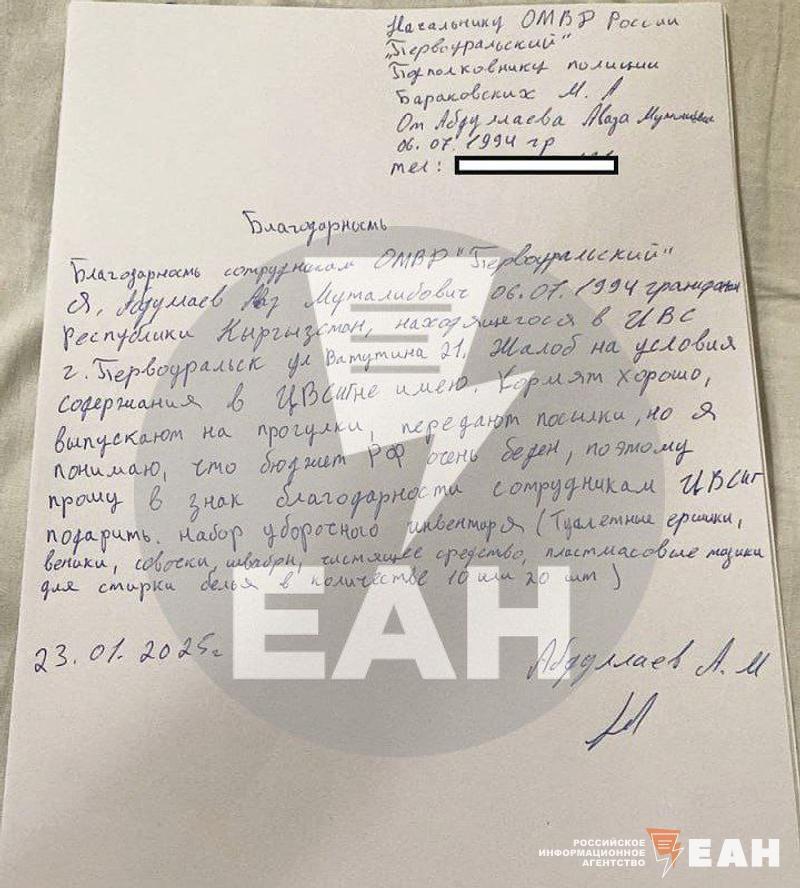 Начальнику ОМВР России
"Первоуральский"
Подполковнику полиции
Бараковских М. А
От Абдуллаева Аваза
06.07.1994 гр
тел:
Благодарность
Благодарность сотрудникам ОМВР "Первоуральский"
Я, Муталибович 06.07.1994
Республики Кыргызстан, находящегося в ЦВС
г. Первоуральск ул Ватутина 21. Жалоб на условия
содержания в ЦВСИГ не имею. Кормят хорошо,
выпускают на прогулки, передают посылки, но я
понимаю, что бюджет РФ очень беден, поэтому
прошу в знак благодарности сотрудникам ЦВСИГ
подарить. набор уборочного инвентаря (Туалетные ершики,
веники, совочки, швабры, чистящее средство, пластмасовые тазики
для стирки белья в количестве 10 или 20 шт)
23.01.2025г
Абдуллаев А. М
ЕАН
РОССИЙСКОЕ
ИНФОРМАЦИОННОЕ
АГЕНТСТВО
ЕАН